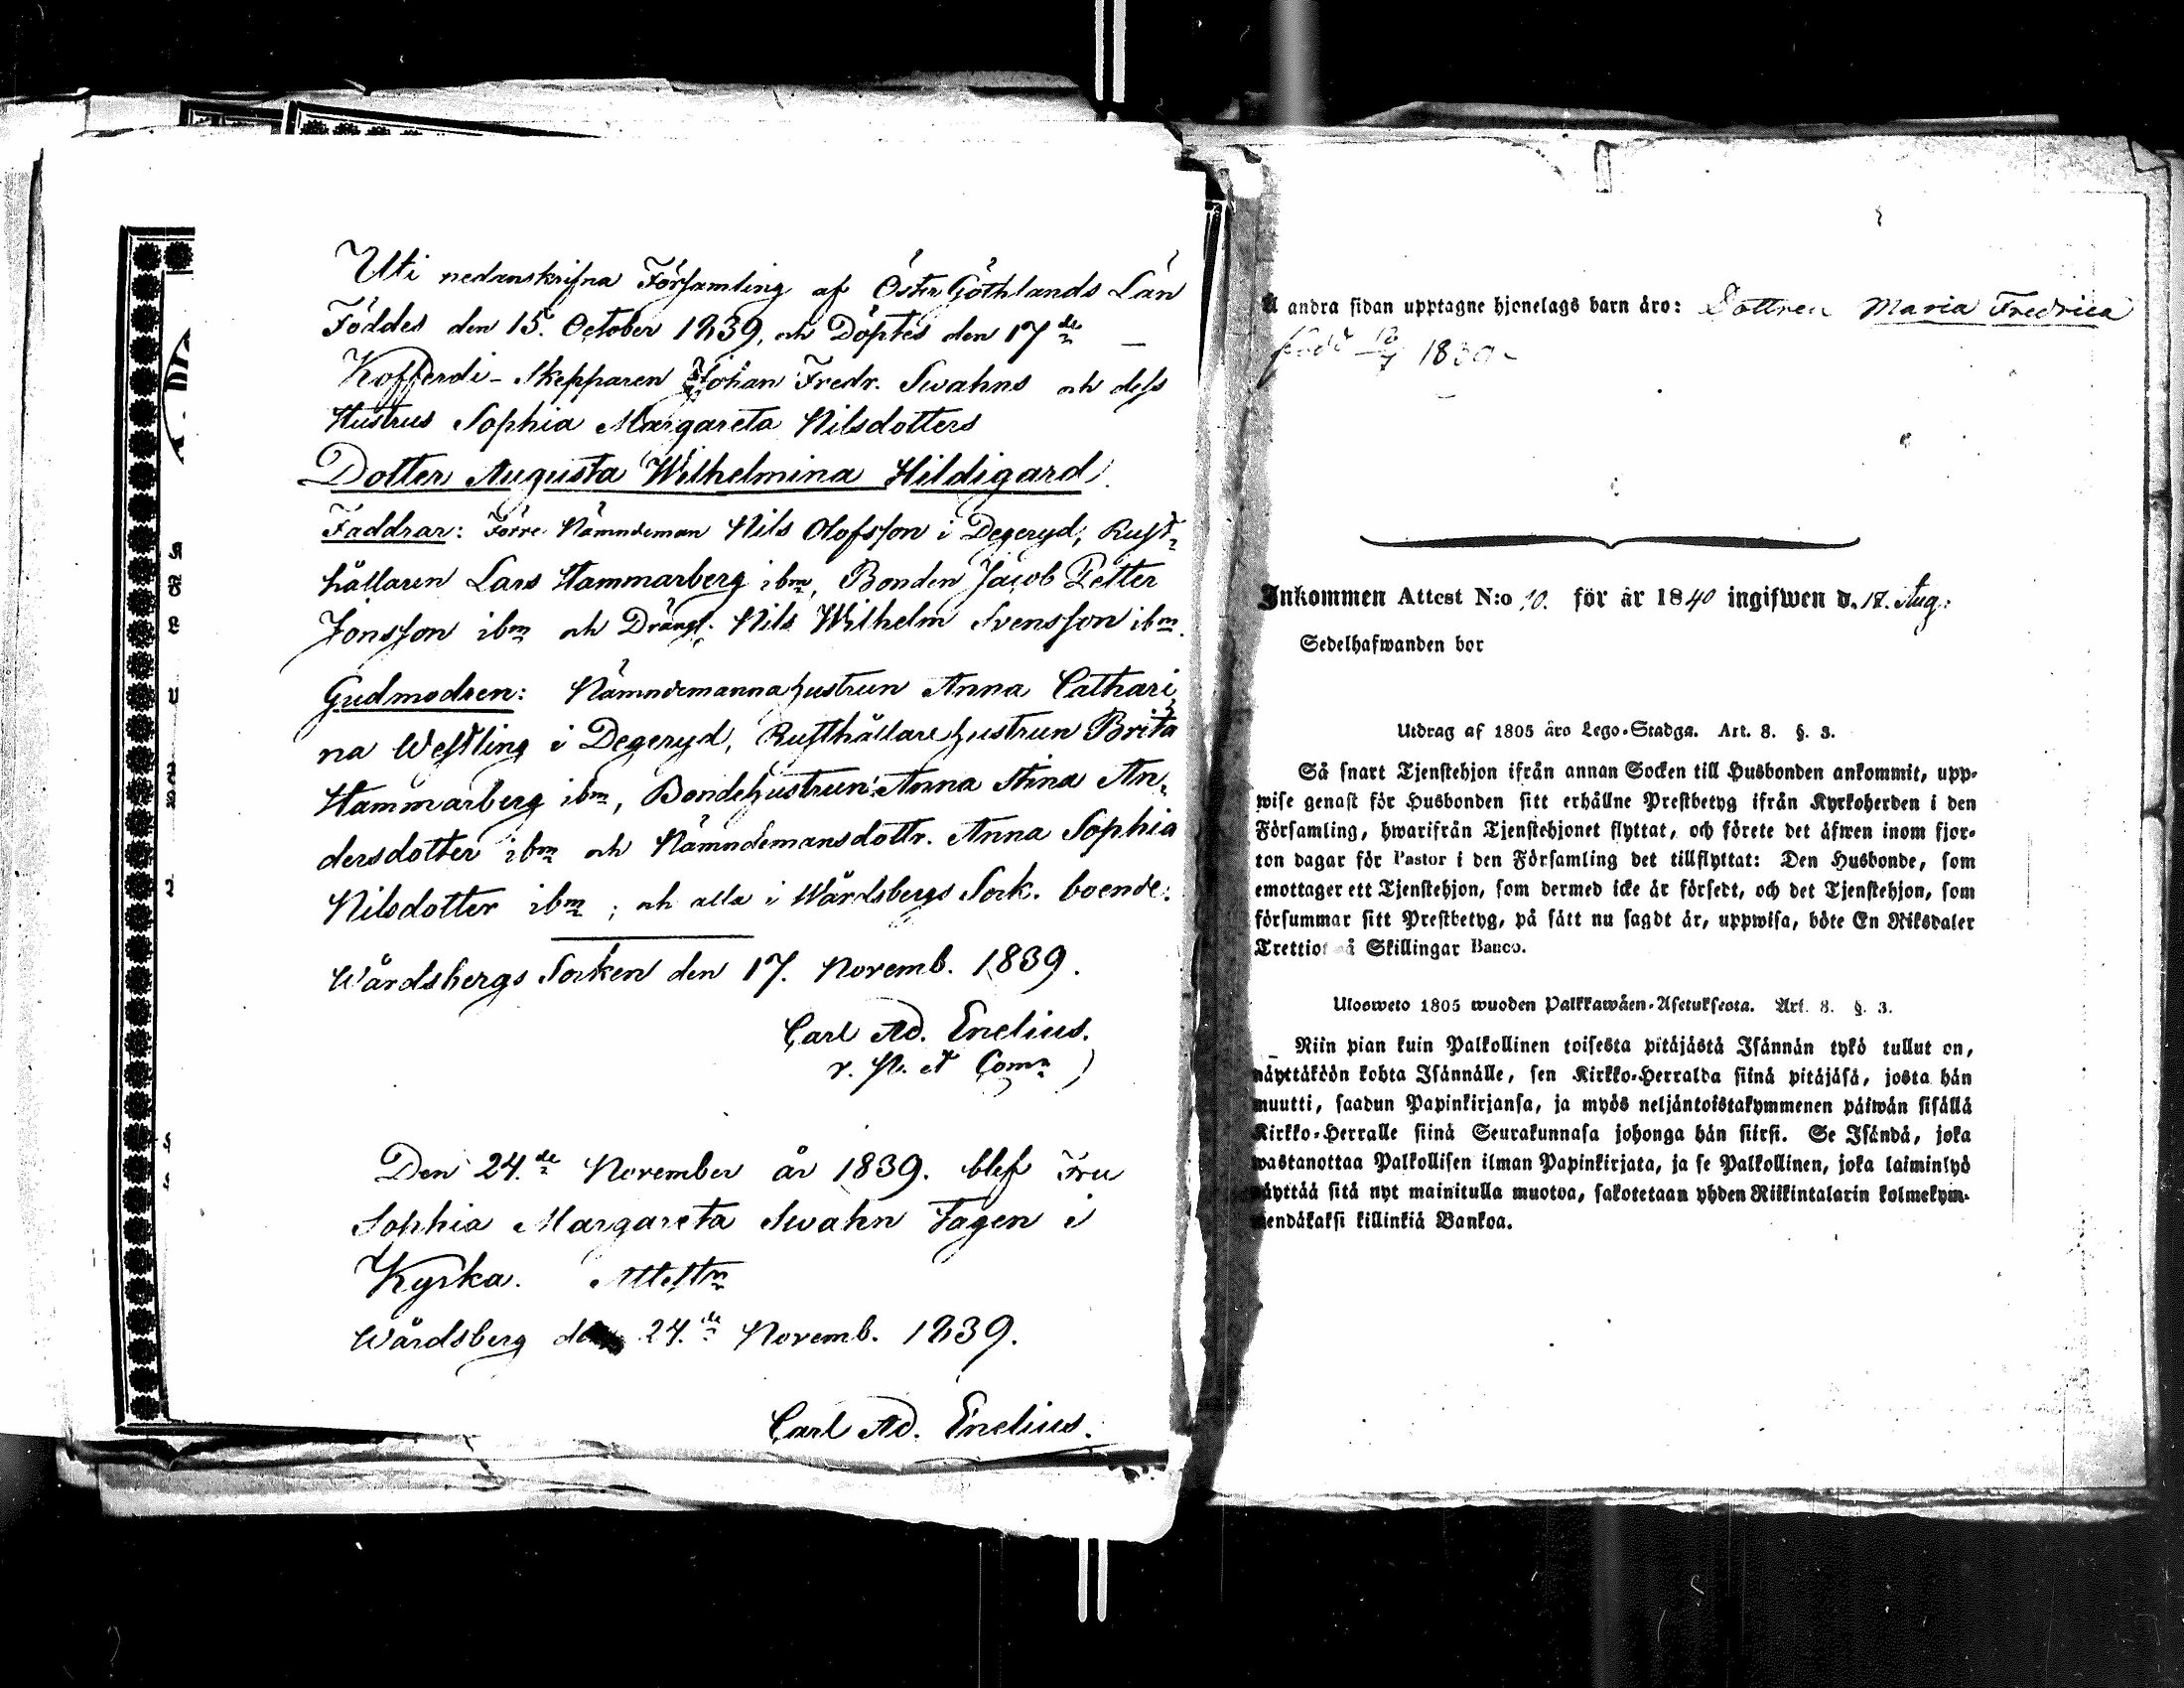 Uti nedanskrifna Församling af Öster Göthlands Län
Föddes den 15. October 1839, och Döptes den 17de
Kofferdi-Skepparen Johan Fredr. Swahns och dess
Hustrus Sophia Margareta Nilsdotters
Dotter Augusta Wilhelmina Hildigard.
Faddrar: Förre Nämndeman Nils Olofsson i Degeryd; Rust-
hållaren Lars Hammarberg ibm, Bonden Jacob Petter
Jonsson ibm och Drängn. Nils Wilhelm Svensson ibm.
Gudmodren: Nämndemannahustrun Anna Cathari
na Westling i Degeryd, Rusthållarehustrun Brita
Hammarberg ibm, Bondehustrun Anna Stina An-
dersdotter ibm och Nämndemansdottr. Anna Sophia
Nilsdotter ibm; och alla i Wårdsbergs Sock. boende.
Wårdsbergs Socken den 17. Novemb. 1839.
Carl Ad. Enelius.
v. P. et Comr
Den 24.de November år 1839. blef Fru
Sophia Margareta Swahn Tagen i
Kyrka. Attestr
Wårdsberg den 24.de Novemb. 1839.
Carl Ad. Enelius.
Å andra sidan upptagne hjonelags barn äro: Dottren Maria Fredrica
född 1839
Inkommen Attest N:o 10. för år 1840 ingifwen d. 17. Aug.
Sedelhafwanden bor
Utdrag af 1805 års Lego-Stadga. Art. 8. §. 3.
Så snart Tjenstehjon ifrån annan Socken till Husbonden ankommit, upp-
wise genast för Husbonden sitt erhållne Prestbetyg ifrån Kyrkoherden i den
Församling, hwarifrån Tjenstehjonet flyttat, och förete det äfwen inom fjor-
ton dagar för Pastor i den Församling det tillflyttat: Den Husbonde, som
emottager ett Tjenstehjon, som dermed icke är försedt, och det Tjenstehjon, som
försummar sitt Prestbetyg, på sätt nu sagdt är, uppwisa, böte En Riksdaler
Trettiotwå Skillingar Banco.
Ulosweto 1805 wuoden Palkkawäen-Asetuksesta. Art. 8. §. 3.
Niin pian kuin Palkollinen toisesta pitäjästä Isännän tykö tullut on,
näyttäköön kohta Isännälle, sen Kirkko-Herralda siinä pitäjäsä, josta hän
muutti, saadun Papinkirjansa, ja myös neljäntoistakymmenen päiwän sisällä
Kirkko-Herralle siinä Seurakunnasa johonga hän siirsi. Se Isändä, joka
wastanottaa Palkollisen ilman Papinkirjata, ja se Palkollinen, joka laiminlyö
näyttää sitä nyt mainitulla muotoa, sakotetaan yhden Riikintalarin kolmekym-
mendäkaksi killinkiä Bankoa.